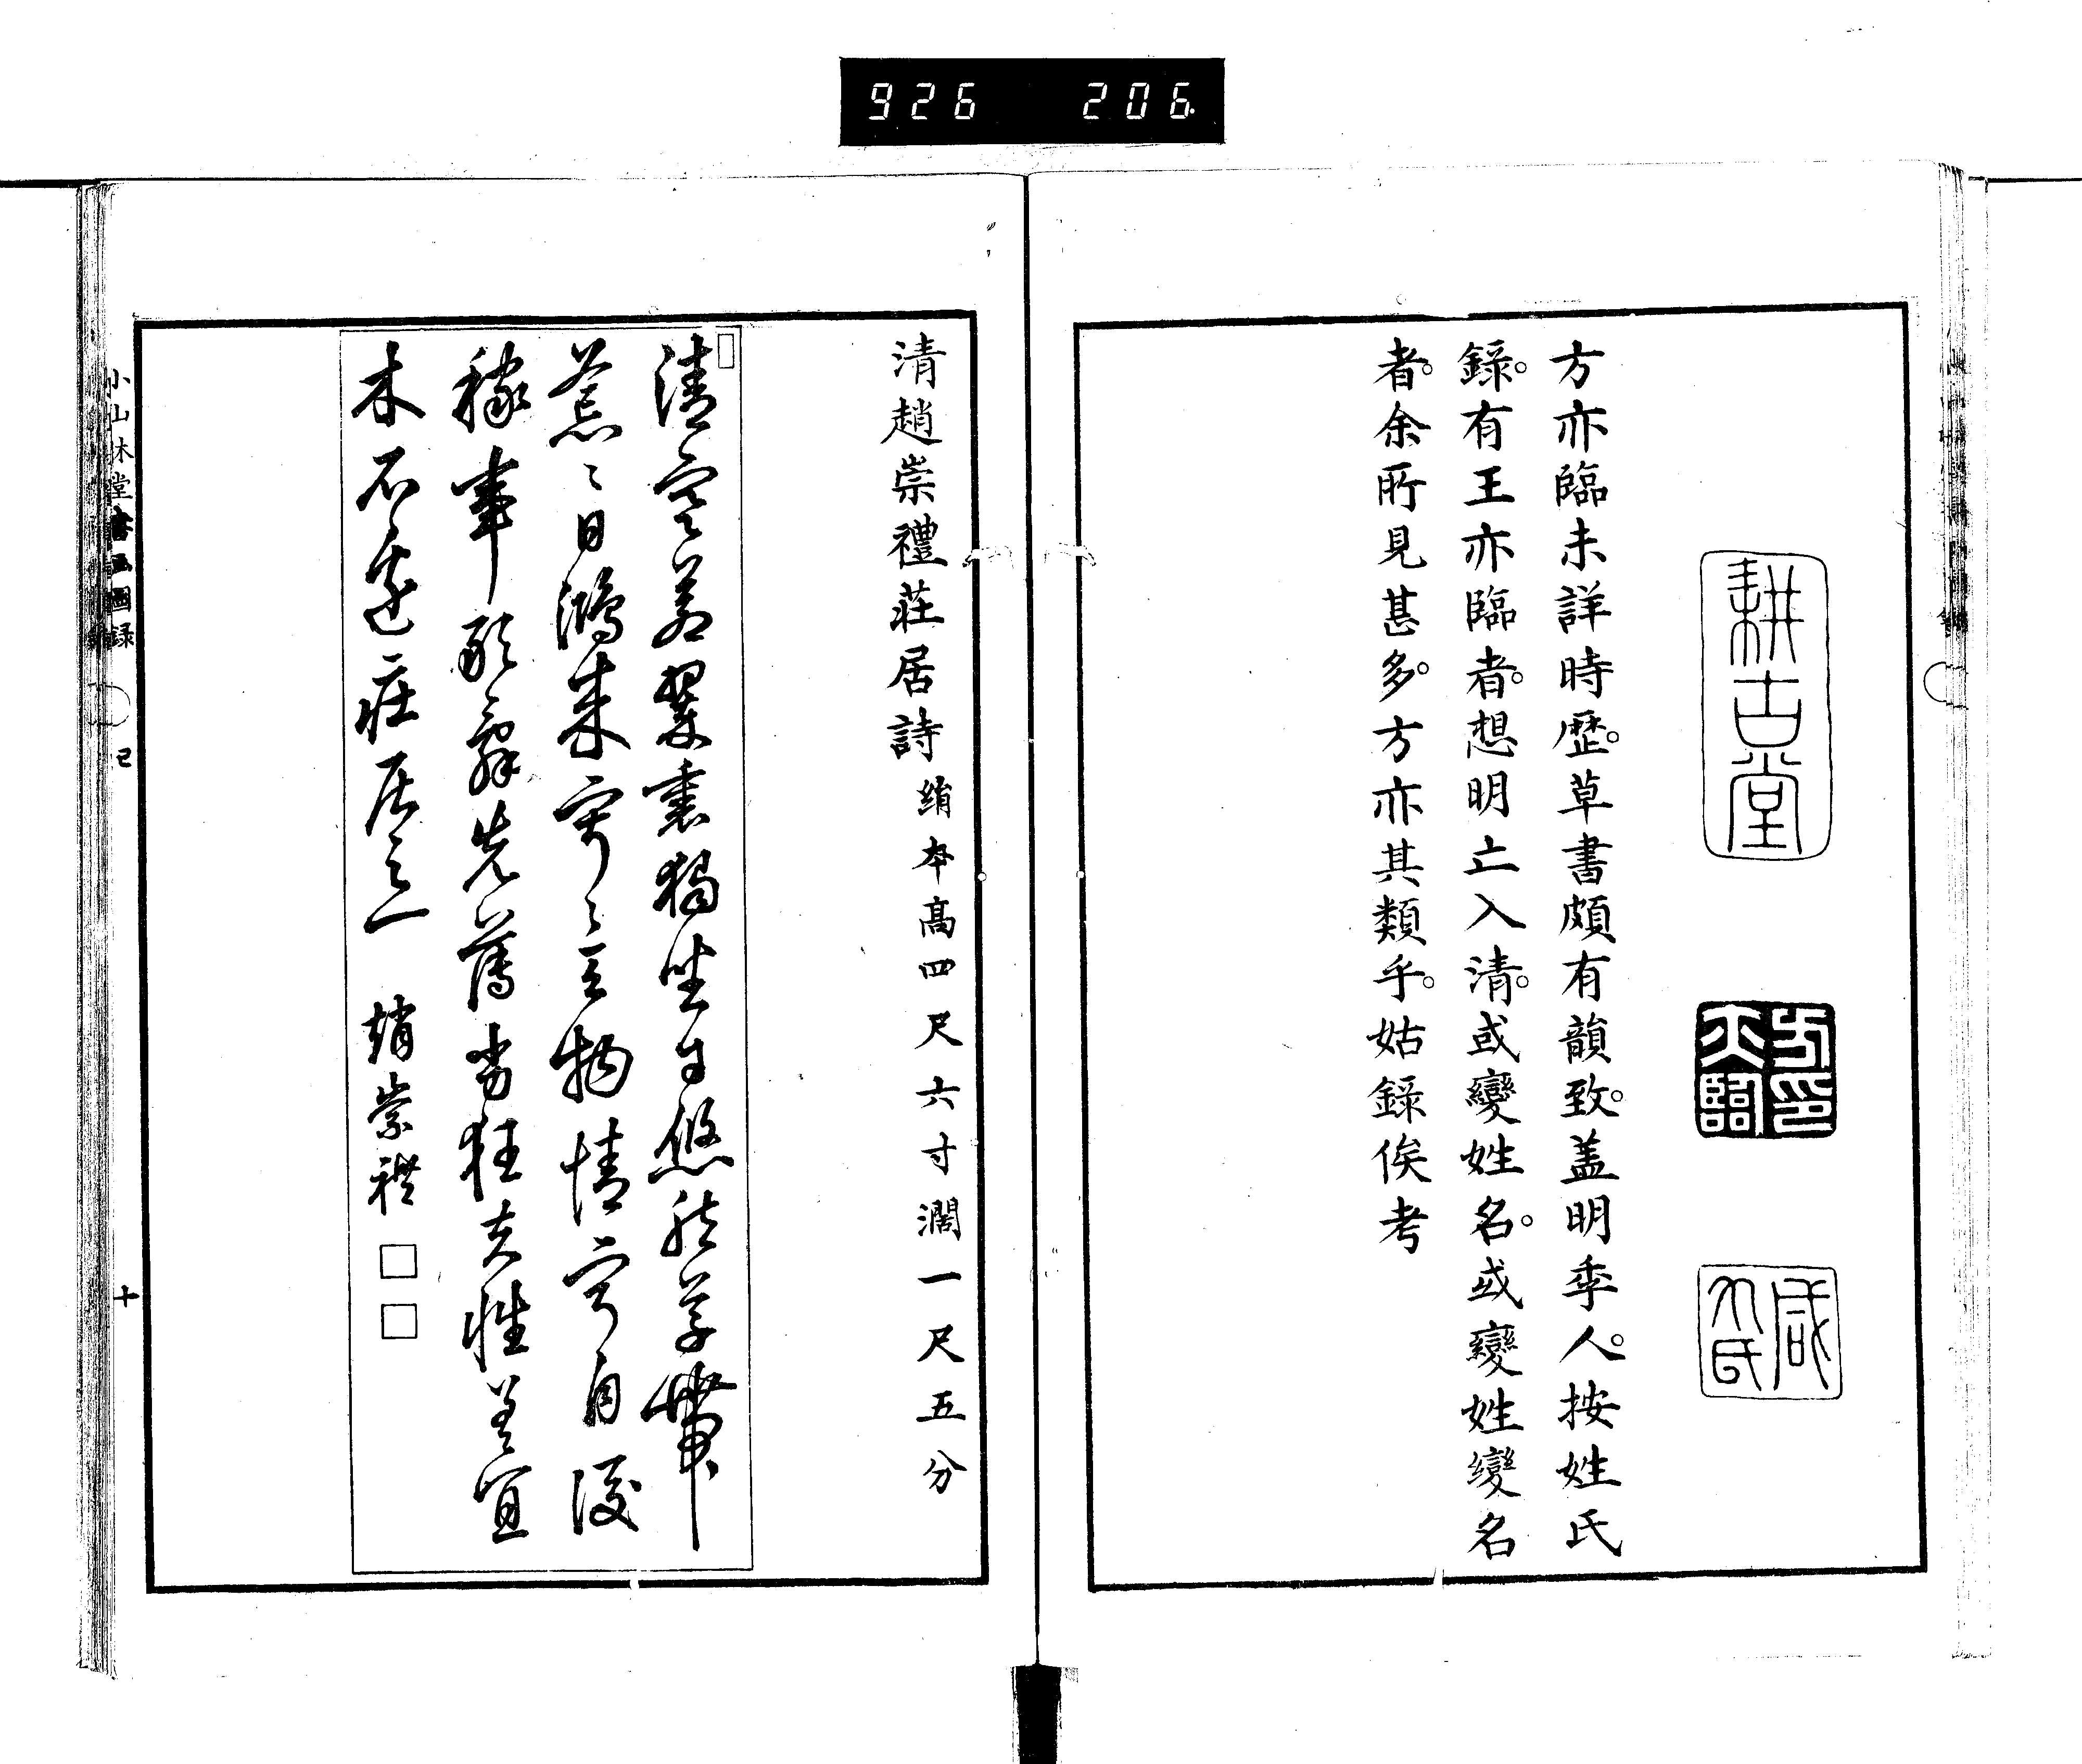 耕古堂
方印亦臨
方亦臨未詳時歷。草書頗有韻致。蓋明季人。按姓氏
錄。有王亦臨者。想明亡入清。或變姓名。或變姓變名
者。余所見甚多。方亦其類乎。姑錄俟考
清趙崇禮莊居詩 絹本高四尺六寸濶一尺五分
清空翠裏獨坐自悠然草帶
荒〻日鴻來〻天物情寧自後
稼事敢辭先薄劣狂夫性差宜
木石邊莊居之一 趙崇禮
小山林堂書画圖録 己 十
926 206